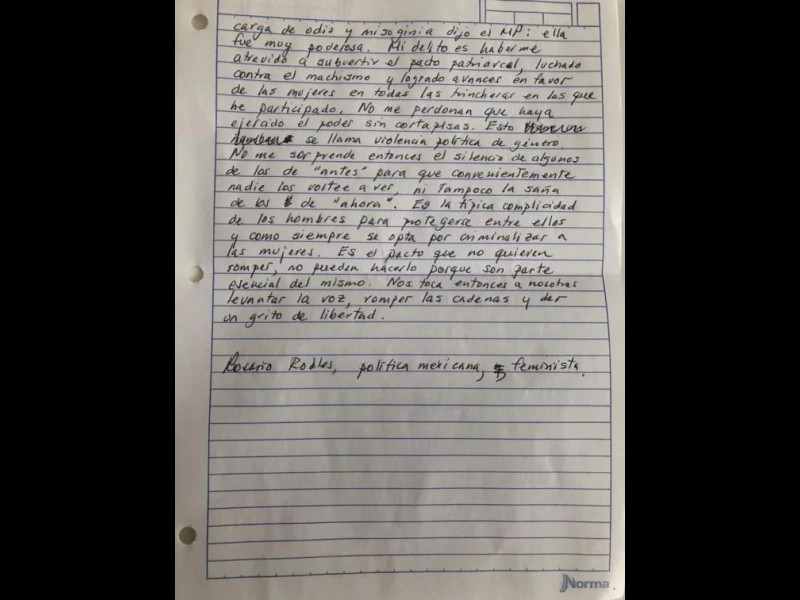 carga de odio y misoginia dijo el MP: ella
fue muy poderosa. Mi delito es haberme
atrevido a subvertir el pacto patriarcal, luchado
contra el machismo y logrado avances en favor
de las mujeres en todas las trincheras en las que
he participado. No me perdonan que haya
ejercido el poder sin cortapisas. Esto
se llama violencia política de género.
No me sorprende entonces el silencio de algunos
de los de "antes" para que convenientemente
nadie los voltee a ver, ni Tampoco la saña
de los de "ahora". Es la típica complicidad
de los hombres para protegerse entre ellos
y como siempre se opta por criminalizar a
las mujeres. Es el pacto que no quieren
romper, no pueden hacerlo porque son parte
esencial del mismo. Nos toca entonces a nosotras
levantar la voz, romper las cadenas y dar
un grito de libertad.
Rosario Robles, política mexicana, feminista.
Norma